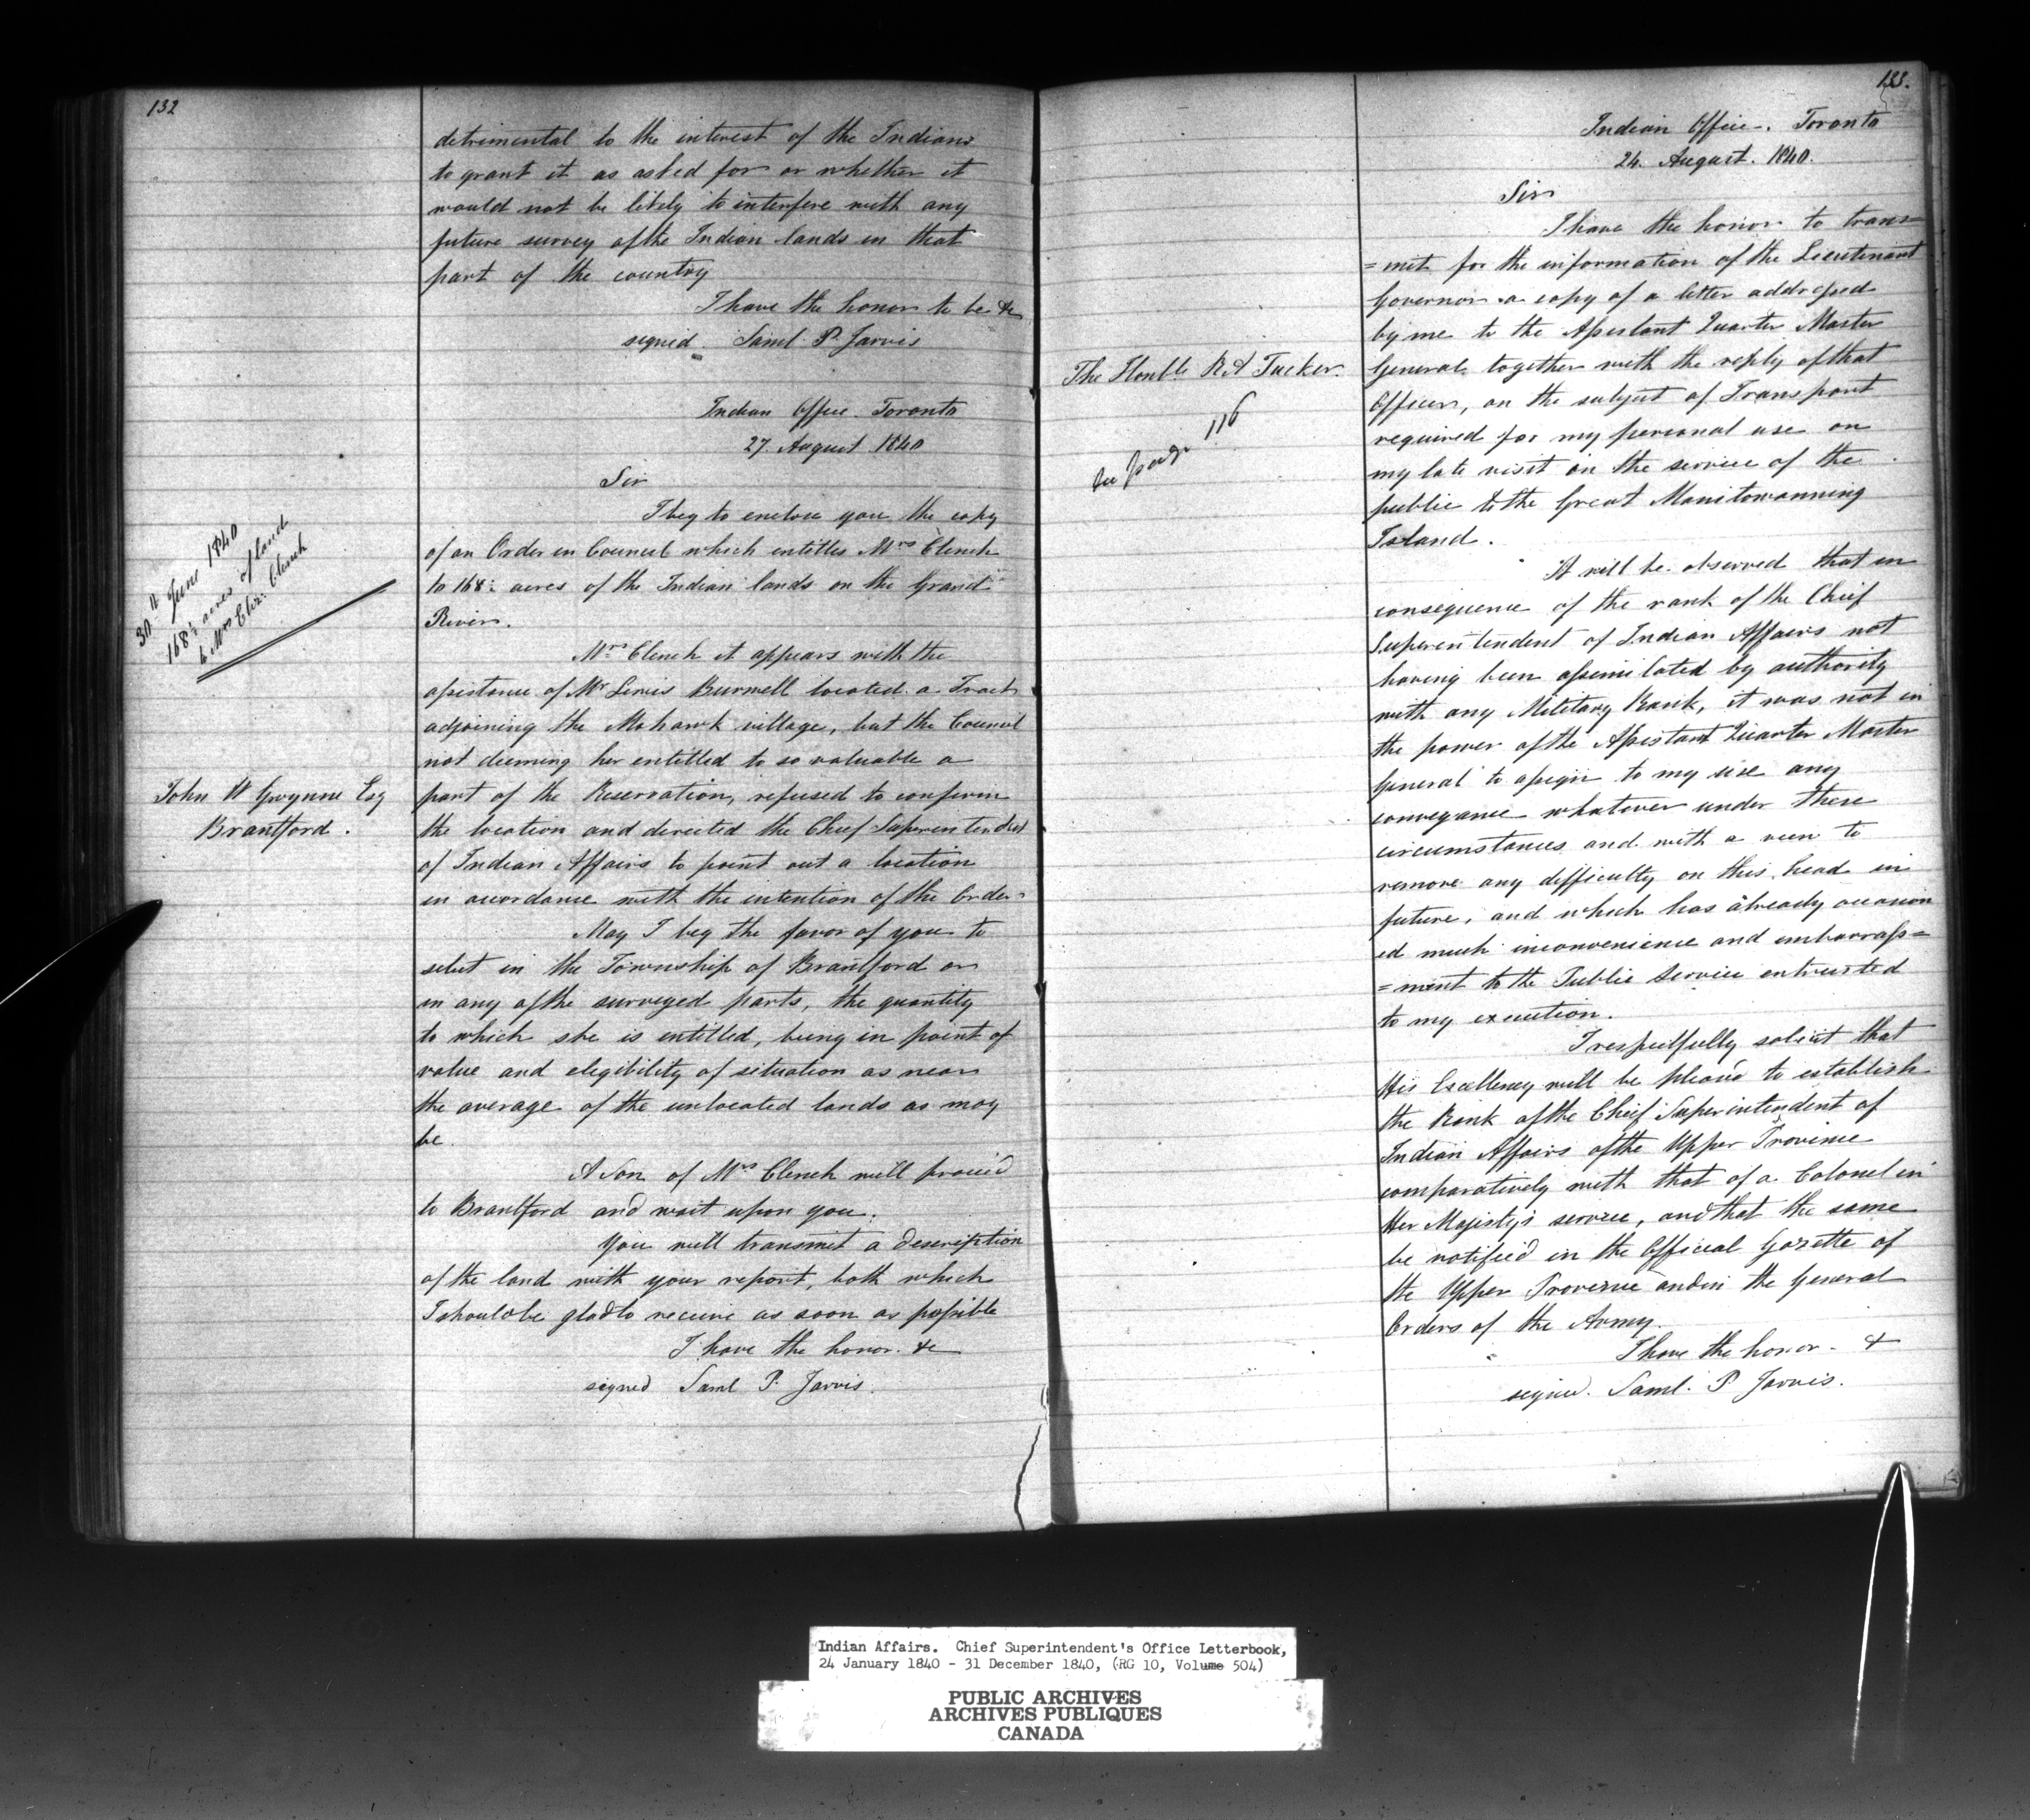 132
detrimental to the interest of the Indians
to grant it as asked for or whether it
would not be likely to interfere with any
future survey of the Indian lands in that
part of the country
I have the honor to be &c
signed. Saml. P. Jarvis
Indian Office. Toronto
27. August 1840
Sir
I beg to enclose you the copy
of an Order in Council which entitles Mrs Clench
to 168½ acres of the Indian lands on the Grand
River.
30th June 1840
168½ acres of land
to Mrs Eliz: Clench
Mrs Clench it appears with the
assistance of Mr Lewis Burwell located a Tract
adjoining the Mohawk village, but the Council
not deeming her entitled to so valuable a
John W Gwynne Esq
Brantford.
part of the Reservation, refused to confirm
the location and directed the Chief Superintendent
of Indian Affairs to point out a location
in accordance with the intention of the Order.
May I beg the favor of you to
select in the Township of Brantford or
in any of the surveyed parts, the quantity
to which she is entitled, being in point of
value and elegibility of situation as near
the average of the unlocated lands as may
be.
A Son of Mrs Clench will proceed
to Brantford and wait upon you.
You will transmit a description
of the land with your report, both which
I should be glad to receive as soon as possible
I have the honor. &c
signed Saml P. Jarvis.
133.
Indian Office. Toronto
24. August. 1840.
Sir
I have the honor to trans=
=mit for the information of the Lieutenant
Governor a copy of a letter addressed
by me to the Assistant Quarter Master
The Honble R A Tucker.
see page 116
General together with the reply of that
Officer, on the subject of Transport
required for my personal use on
my late visit on the service of the
public to the Great Manitowanning
Island.
It will be observed that in
consequence of the rank of the Chief
Superintendent of Indian Affairs not
having been assimilated by authority
with any Military Rank, it was not in
the power of the Assistant Quarter Master
General to assign to my use any
conveyance whatever under these
circumstances and with a veiw to
remove any difficulty on this head in
future, and which has already occasion
ed much inconvenience and embarrass=
=ment to the Public Service entrusted
to my execution.
I respectfully solicit that
His Excellency will be pleased to establish
the Rank of the Chief Superintendent of
Indian Affairs of the Upper Province
comparatively with that of a Colonel in
Her Majesty's service, and that the same
be notified in the Official Gazette of
the Upper Province and in the General
Orders of the Army.
I have the honor. &
signed. Saml. P Jarvis.
Indian Affairs. Chief Superintendent's Office Letterbook,
24 January 1840 - 31 December 1840, (RG 10, Volume 504)
PUBLIC ARCHIVES
ARCHIVES PUBLIQUES
CANADA